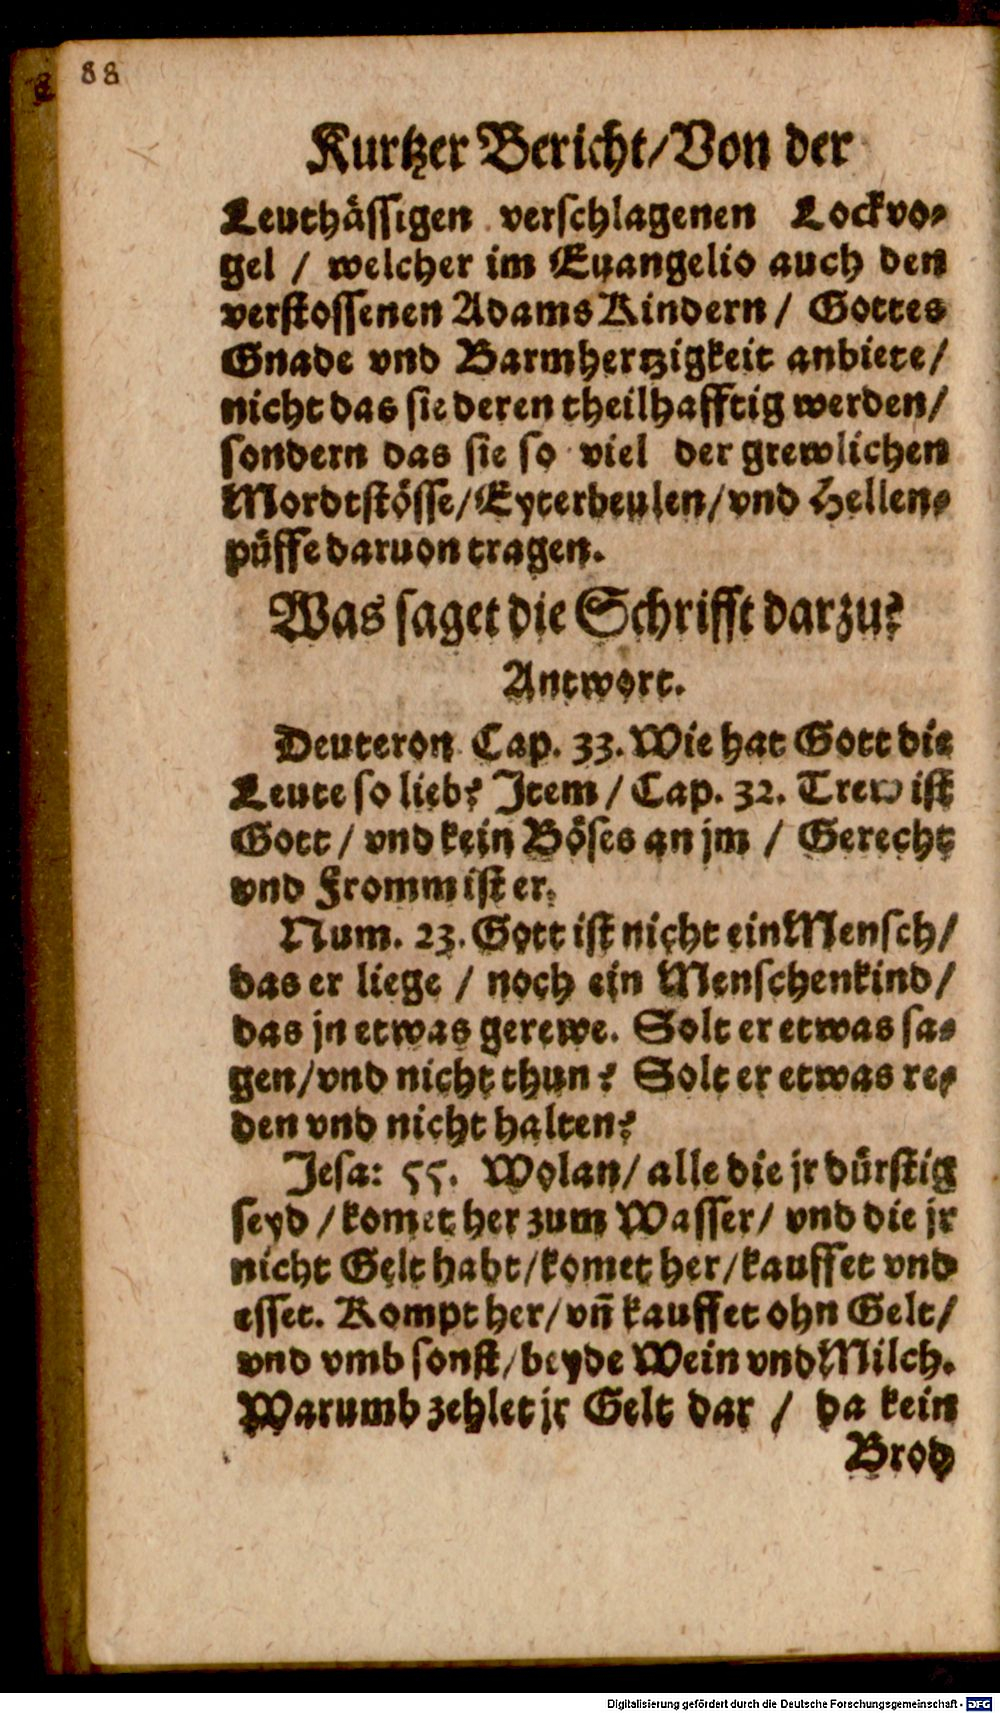 88
Kurtzer Bericht/Von der
Leuthässigen verschlagenen Lockvo-
gel / welcher im Euangelio auch den
verstossenen Adams Kindern / Gottes
Gnade vnd Barmhertzigkeit anbiete/
nicht das sie deren theilhafftig werden/
sondern das sie so viel der grewlichen
Mordtstösse/Eyterbeulen/vnd Hellen-
püffe daruon tragen.
Was saget die Schrifft darzu?
Antwort.
Deuteron Cap. 33. Wie hat Gott die
Leute so lieb? Item / Cap. 32. Trew ist
Gott / vnd kein Böses an jm / Gerecht
vnd Fromm ist er.
Num. 23. Gott ist nicht ein Mensch/
das er liege / noch ein Menschenkind/
das jn etwas gerewe. Solt er etwas sa-
gen/vnd nicht thun? Solt er etwas re-
den vnd nicht halten?
Jesa: 55. Wolan/ alle die jr dürstig
seyd /komet her zum Wasser/ vnd die jr
nicht Gelt habt/komet her/kauffet vnd
esset. Kompt her/vn̄ kauffet ohn Gelt/
vnd vmb sonst/beyde Wein vnd Milch.
Warumb zehlet jr Gelt dar / da kein
Brod
Digitalisierung gefördert durch die Deutsche Forschungsgemeinschaft - DFG